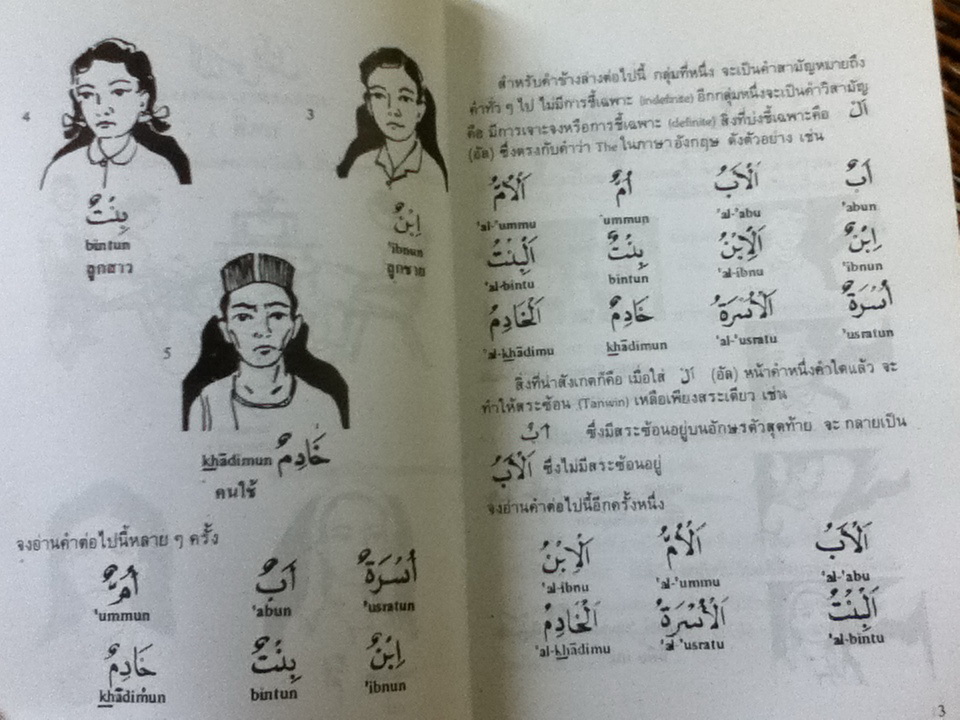 4
3
بِنْتٌ
bintun
ลูกสาว
اِبْنٌ
'ibnun
ลูกชาย
5
khādimun خَادِمٌ
คนใช้
จงอ่านคำต่อไปนี้หลาย ๆ ครั้ง
أُمٌّ أَبٌ أُسْرَةٌ
'ummun 'abun 'usratun
خَادِمٌ بِنْتٌ اِبْنٌ
khādimun bintun 'ibnun
สำหรับคำข้างล่างต่อไปนี้ กลุ่มที่หนึ่ง จะเป็นคำสามัญหมายถึง
คำทั่ว ๆ ไป ไม่มีการชี้เฉพาะ (indefinite) อีกกลุ่มหนึ่งจะเป็นคำวิสามัญ
คือ มีการเจาะจงหรือการชี้เฉพาะ (definite) สิ่งที่บ่งชี้เฉพาะคือ اَلْ
(อัล) ซึ่งตรงกับคำว่า The ในภาษาอังกฤษ ดังตัวอย่าง เช่น
اَلْأُمُّ أُمٌّ اَلْأَبُ أَبٌ
'al-'ummu 'ummun 'al-'abu 'abun
اَلْبِنْتُ بِنْتٌ اَلْاِبْنُ اِبْنٌ
'al-bintu bintun 'al-ibnu 'ibnun
اَلْخَادِمُ خَادِمٌ اَلْأُسْرَةُ أُسْرَةٌ
'al-khādimu khādimun 'al-'usratu 'usratun
สิ่งที่น่าสังเกตก็คือ เมื่อใส่ اَلْ (อัล) หน้าคำหนึ่งคำใดแล้ว จะ
ทำให้สระซ้อน (Tanwin) เหลือเพียงสระเดียว เช่น
أَبٌ ซึ่งมีสระซ้อนอยู่บนอักษรตัวสุดท้าย จะ กลายเป็น
اَلْأَبُ ซึ่งไม่มีสระซ้อนอยู่
จงอ่านคำต่อไปนี้อีกครั้งหนึ่ง
اَلْاِبْنُ اَلْأُمُّ اَلْأَبُ
'al-ibnu 'al-'ummu 'al-'abu
اَلْخَادِمُ اَلْأُسْرَةُ اَلْبِنْتُ
'al-khādimu 'al-'usratu 'al-bintu
3